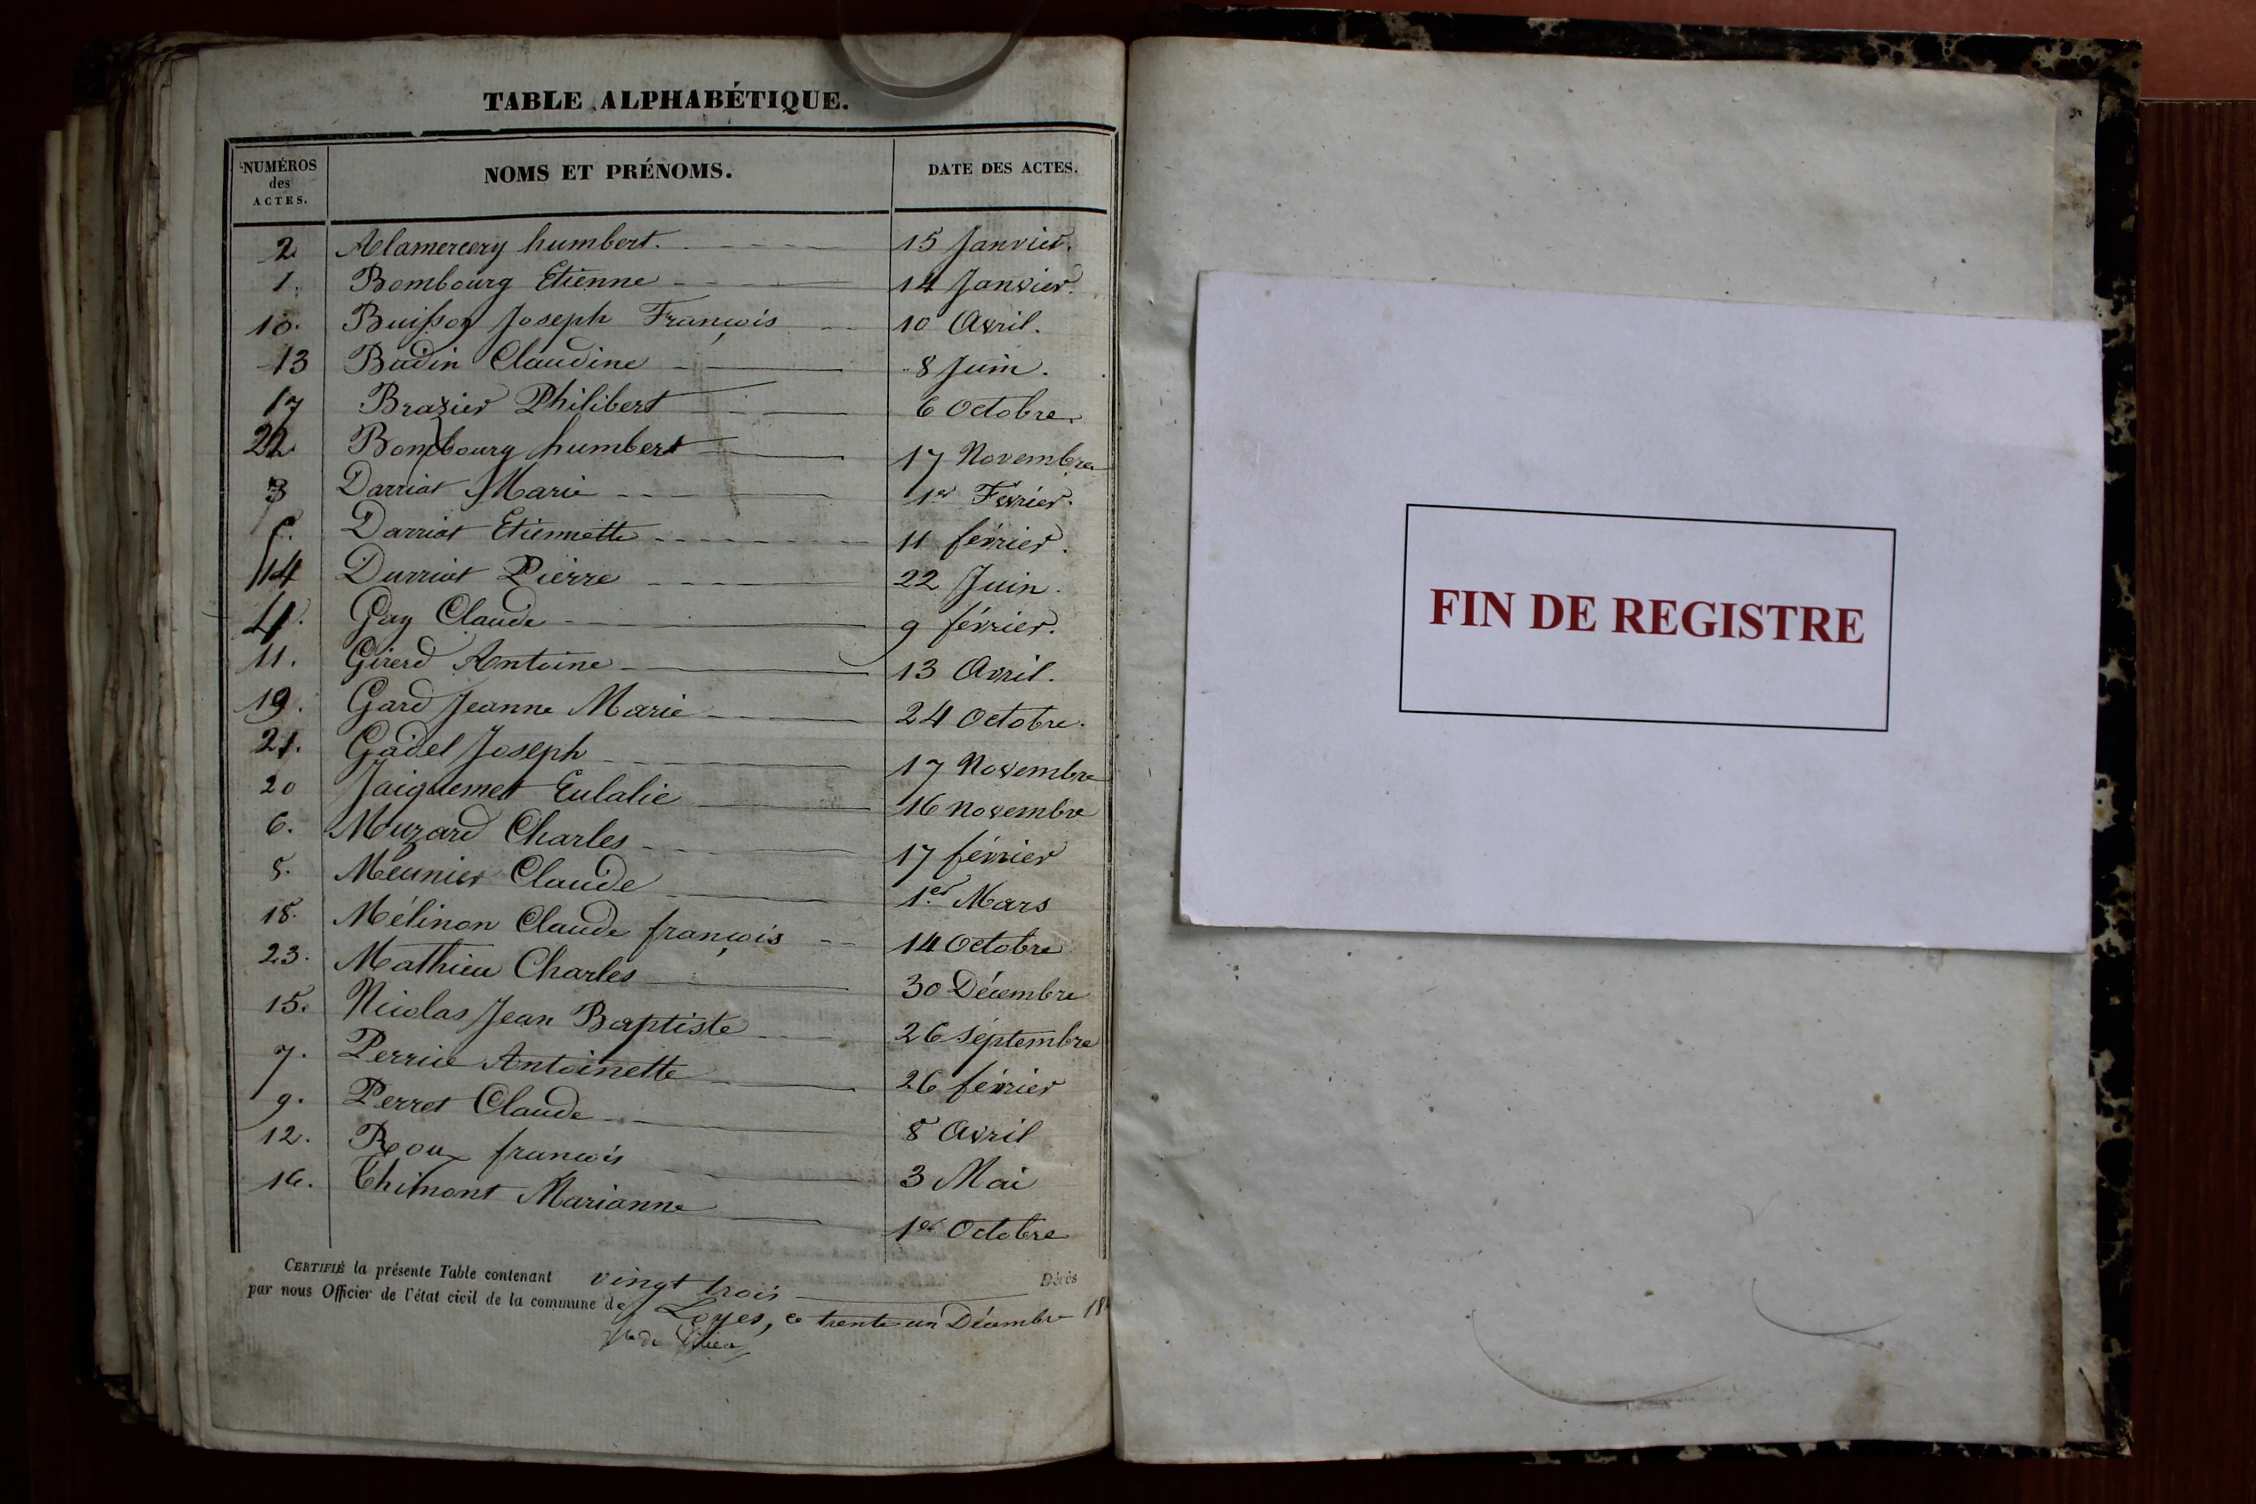 TABLE ALPHABÉTIQUE.
NUMÉROS des ACTES. NOMS ET PRÉNOMS. DATE DES ACTES.
2 Alamercery humbert. 15 Janvier.
1. Bombourg Etienne 14 Janvier.
10. Buisson Joseph François 10 Avril.
13 Badin Claudine 8 Juin.
17 Brazier Philibert 6 Octobre.
22 Bombourg humbert 17 Novembre
3 Darriat Marie 1er Fevrier.
5. Darriat Etiennette 11 février.
14 Durriat Pierre 22 Juin.
4. Gay Claude 9 février.
11. Girerd Antoine 13 Avril.
19. Gard Jeanne Marie 24 Octobre.
21. Gadel Joseph 17 Novembre
20 Jaiguemet Eulalie 16 novembre
6. Muzard Charles 17 février
8. Meunier Claude 1er Mars
18. Mélinon Claude françois 14 Octobre
23. Mathieu Charles 30 Décembre
15. Nicolas Jean Baptiste 26 Séptembre
7. Perrice Antoinette 26 février
9. Perret Claude 8 Avril
12. Roux francois 3 Mai
16. Thimont Marianne 1er Octobre
CERTIFIÉ la présente Table contenant vingt trois Décès
par nous Officier de l'état civil de la commune de Loyes, ce trente un Décembre 18
FIN DE REGISTRE